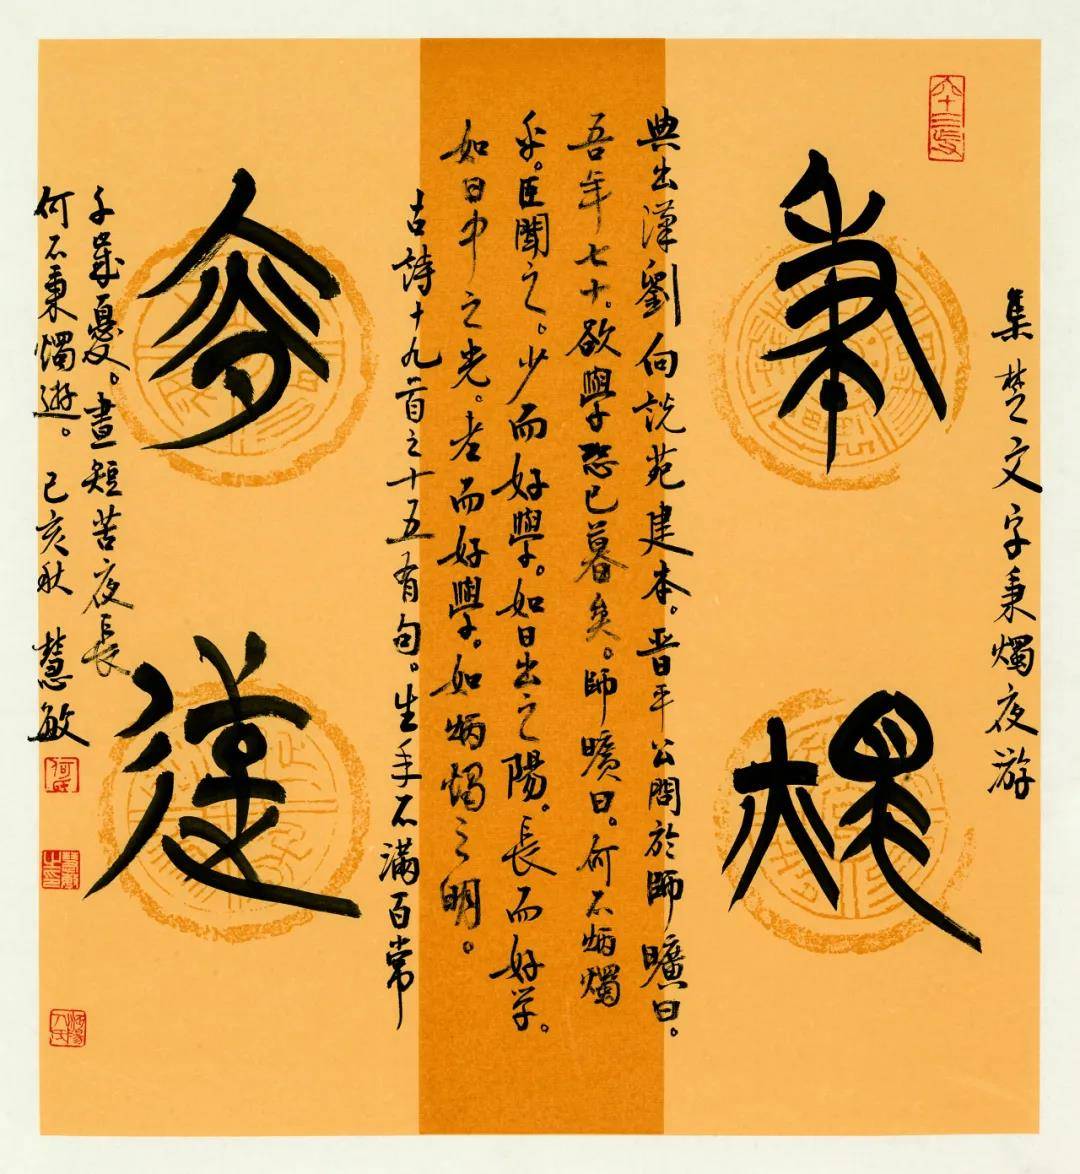 秉燭
夜遊
集楚文字秉燭夜游
典出漢劉向說苑建本。晋平公問於師曠曰。
吾年七十。欲學恐已暮矣。師曠曰。何不炳燭
乎。臣聞之。少而好學。如日出之陽。長而好学。
如日中之光。老而好學。如炳燭之明。
古詩十九首之十五有句。生年不滿百常
千歲憂。晝短苦夜長
何不秉燭遊。己亥秋 慧敏